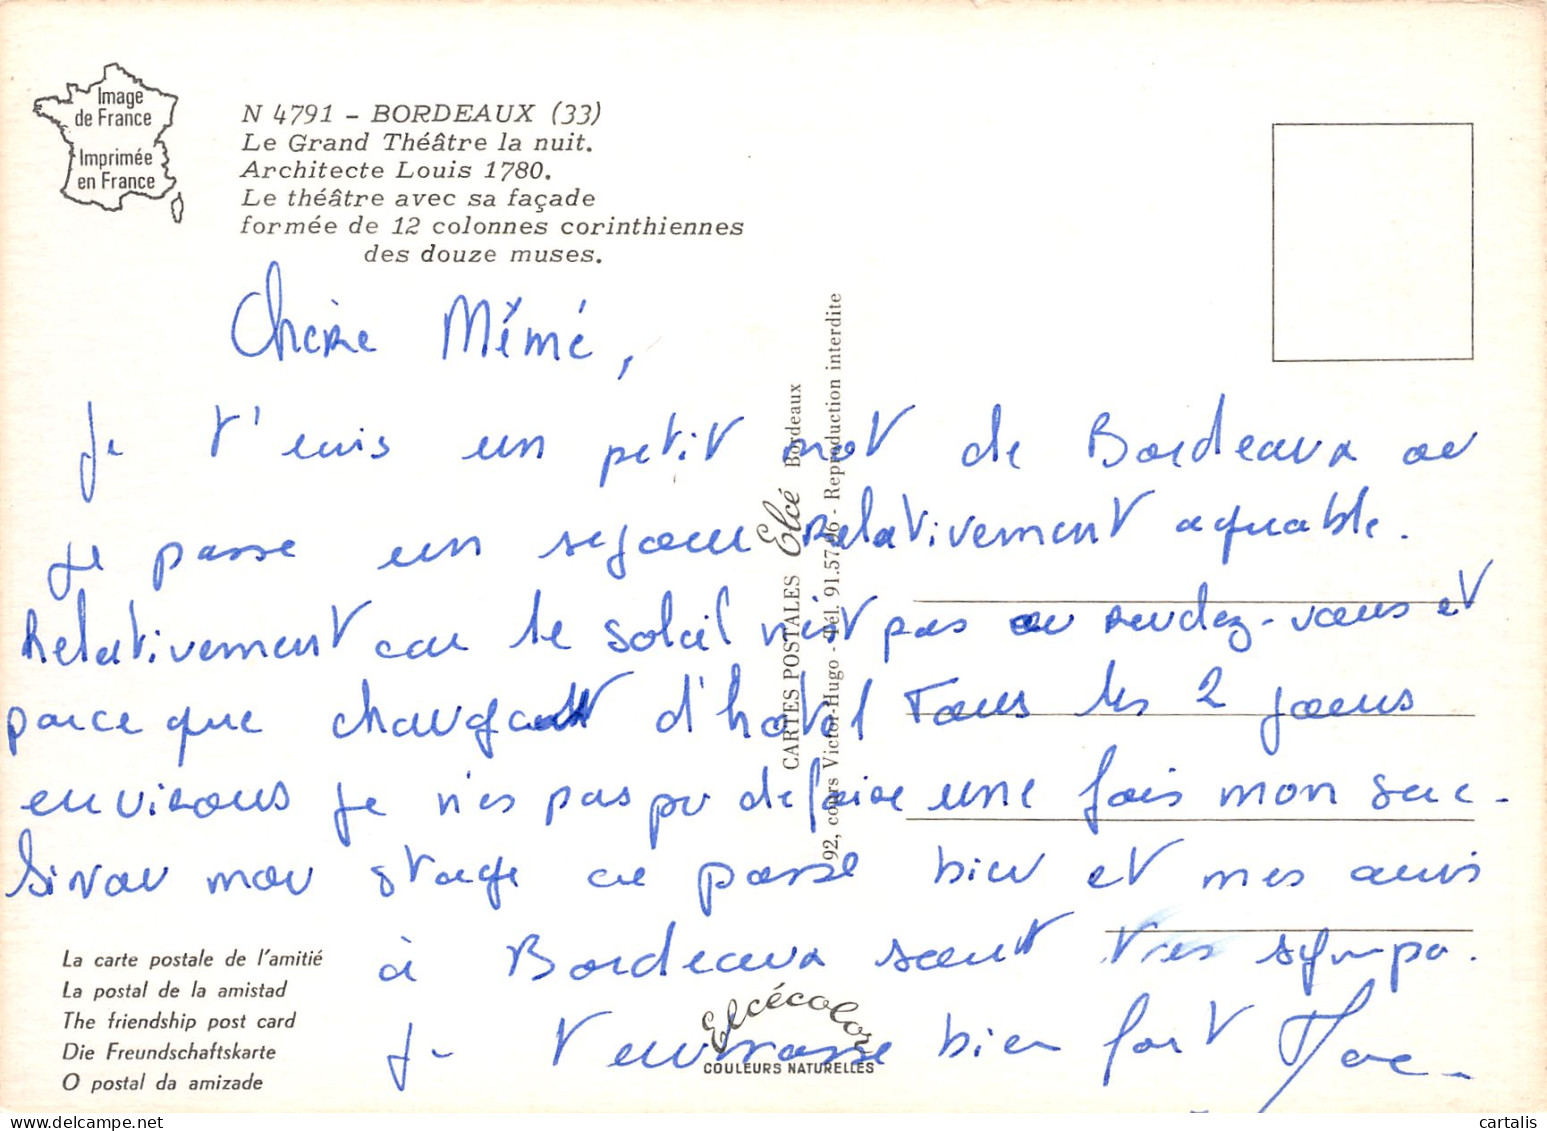 Image
de France
Imprimée
en France
N 4791 - BORDEAUX (33)
Le Grand Théâtre la nuit.
Architecte Louis 1780.
Le théâtre avec sa façade
formée de 12 colonnes corinthiennes
des douze muses.
Chère Mémé,
Je t'écris un petit mot de Bordeaux où
je passe un séjour relativement agréable.
Relativement car le soleil n'est pas au rendez-vous et
parce que changeant d'hôtel tous les 2 jours
environs je n'ai pas pu défaire une fois mon sac.
Sinon mon stage se passe bien et mes amis
à Bordeaux sont très sympa.
Je t'embrasse bien fort
CARTES POSTALES Elcé Bordeaux
92, cours Victor-Hugo - Tél. 91.57.06 - Reproduction interdite
La carte postale de l'amitié
La postal de la amistad
The friendship post card
Die Freundschaftskarte
O postal da amizade
Elcécolor
COULEURS NATURELLES
cartalis